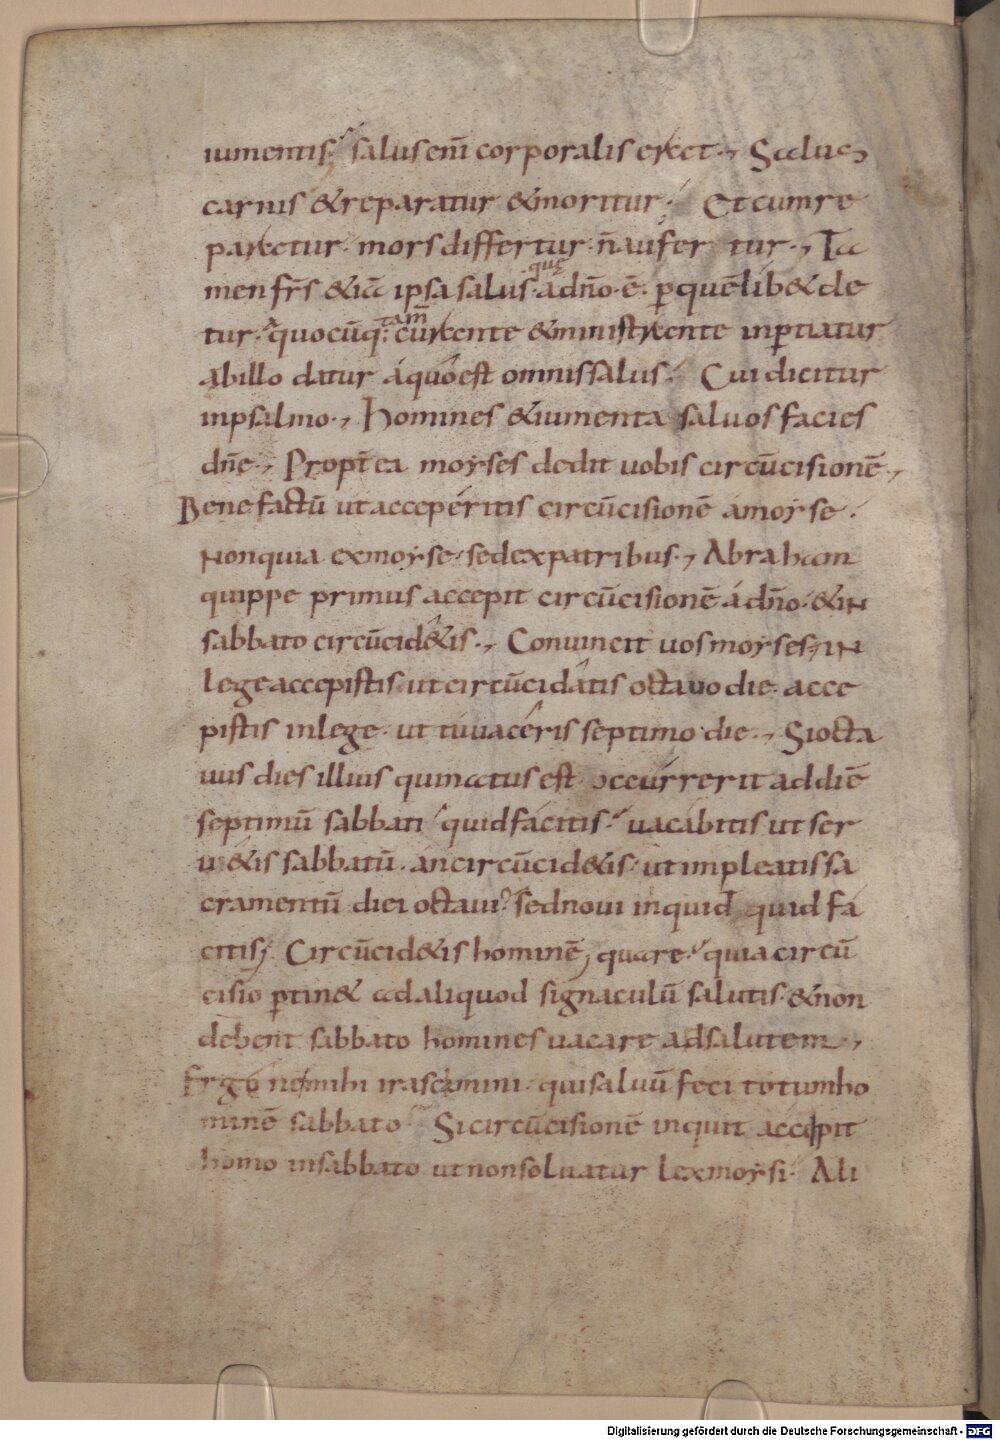 iumentis; salus eni̅ corporalis erat., Salus
carnis & reparatur & moritur; Et cum re
paratur. mors differtur. n̅ aufer tur., Ta
men fr̅s & ia̅ ipsa salus que̜ a dn̅o. e̅. per que̅ lib& de
tur. quocu̅q; tam̅ curante & ministrante inpertiatur
ab illo datur á quo est omnis salus; Cui dicitur
in psalmo., Homines & iumenta saluos facies
dn̅e., Propt̅ea moyses dedit uobis circu̅cisione̅.,
Bene factu̅ ut acceperitis circu̅cisione̅ á moyse.
Non quia ex moyse. sed ex patribus., Abraham
quippe primus accepit circu̅cisione̅ á dn̅o. & in
sabbato circu̅cid&is., Conuincit uos moyses., in
lege accepistis ut circu̅cidatis octauo die. acce
pistis in lege. ut uacetis septimo die., Si octa
uus dies illius qui natus est occurrerit ad die̅
septimu̅ sabbati quid facitis. uacabitis ut ser
u&is sabbatu̅. an circu̅cid&is. ut impleatis sa
cramentu̅ diei octaui? sed noui inquid quid fa
citis; Circu̅cid&is homine̅, quare. quia circu̅
cisio pertin& ad aliquod signaculu̅ salutis. & non
debent sabbato homines uacare ad salutem.,
Ergo ne mihi irascimini. qui saluu̅ feci totum ho
mine̅ sabbato Si circu̅cisione̅ inquit accipit
homo in sabbato ut non soluatur lex moysi. Ali
Digitalisierung gefördert durch die Deutsche Forschungsgemeinschaft - DFG